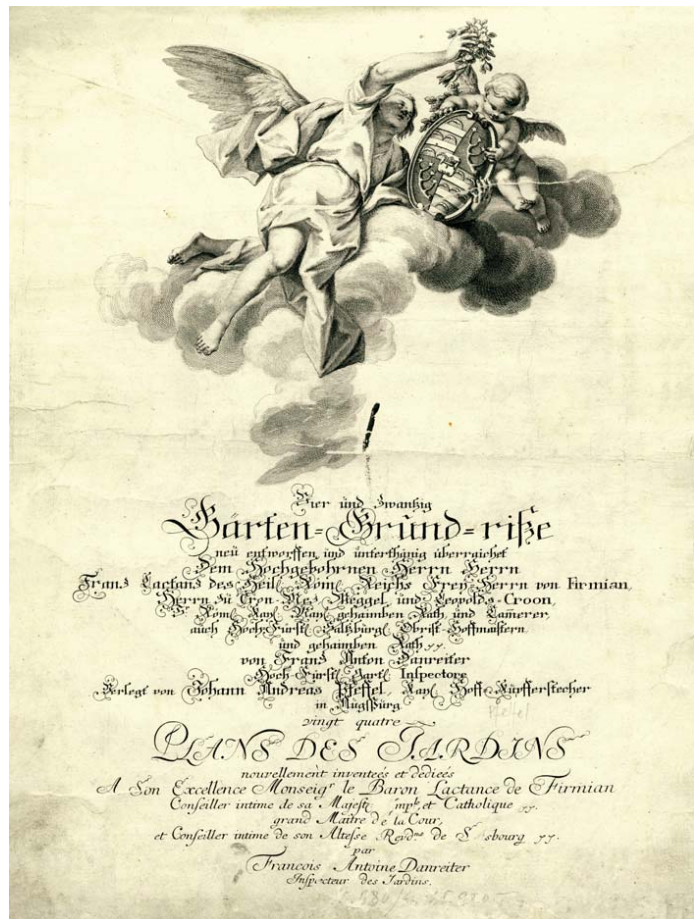 Vier und Zwantzig
Gärten=Grund=riße
neu entworffen und unterthänig überreichet
Dem Hochgebohrnen Herrn Herrn
Franz Lactanz des Heil. Röm. Reichs Frey Herrn von Firmian,
Herrn zu Cron-Mez, Meggel, und Leopolds-Croon,
Röm. Kay. May. gehaimben Rath und Camerer,
auch Hoch-Fürstl. Saltzburg. Obrist-Hoffmaistern
und gehaimben Rath
von Franz Anton Danreiter
Hoch Fürstl. Gart. Inspectore
Verlegt von Johann Andreas Pfeffel, Kay. Hoff-Kupfferstecher
in Augspurg
vingt quatre
PLANS DES JARDINS
nouvellement inventeés et dedieés
A Son Excellence Monseigr. le Baron Lactance de Firmian
Conseiller intime de sa Majeste et Catholique
grand Maitre de la Cour,
et Conseiller intime de son Altesse Revdme de
par
Francois Antoine Danreiter
Inspecteur des Jardins.